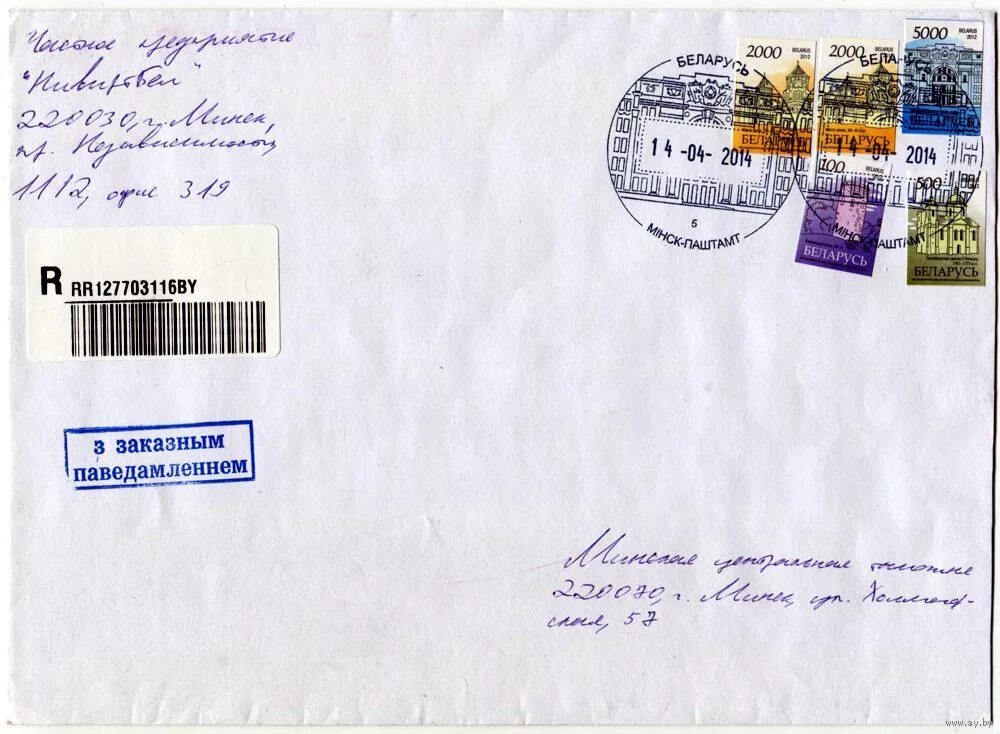 Частное предприятие
"Нивиртбел"
220030, г. Минск,
пр. Независимости
11/2, офис 319
R RR127703116BY
з заказным
паведамленнем
БЕЛАРУСЬ
14-04-2014
5
МІНСК-ПАШТАМТ
БЕЛАРУСЬ
14-04-2014
МІНСК-ПАШТАМТ
2000 BELARUS 2012
БЕЛАРУСЬ
2000 BELARUS 2012
БЕЛАРУСЬ
5000 BELARUS 2012
БЕЛАРУСЬ
100 BELARUS 2012
БЕЛАРУСЬ
500
БЕЛАРУСЬ
Минская центральная таможня
220070, г. Минск, ул.
ская, 57
www.ay.by